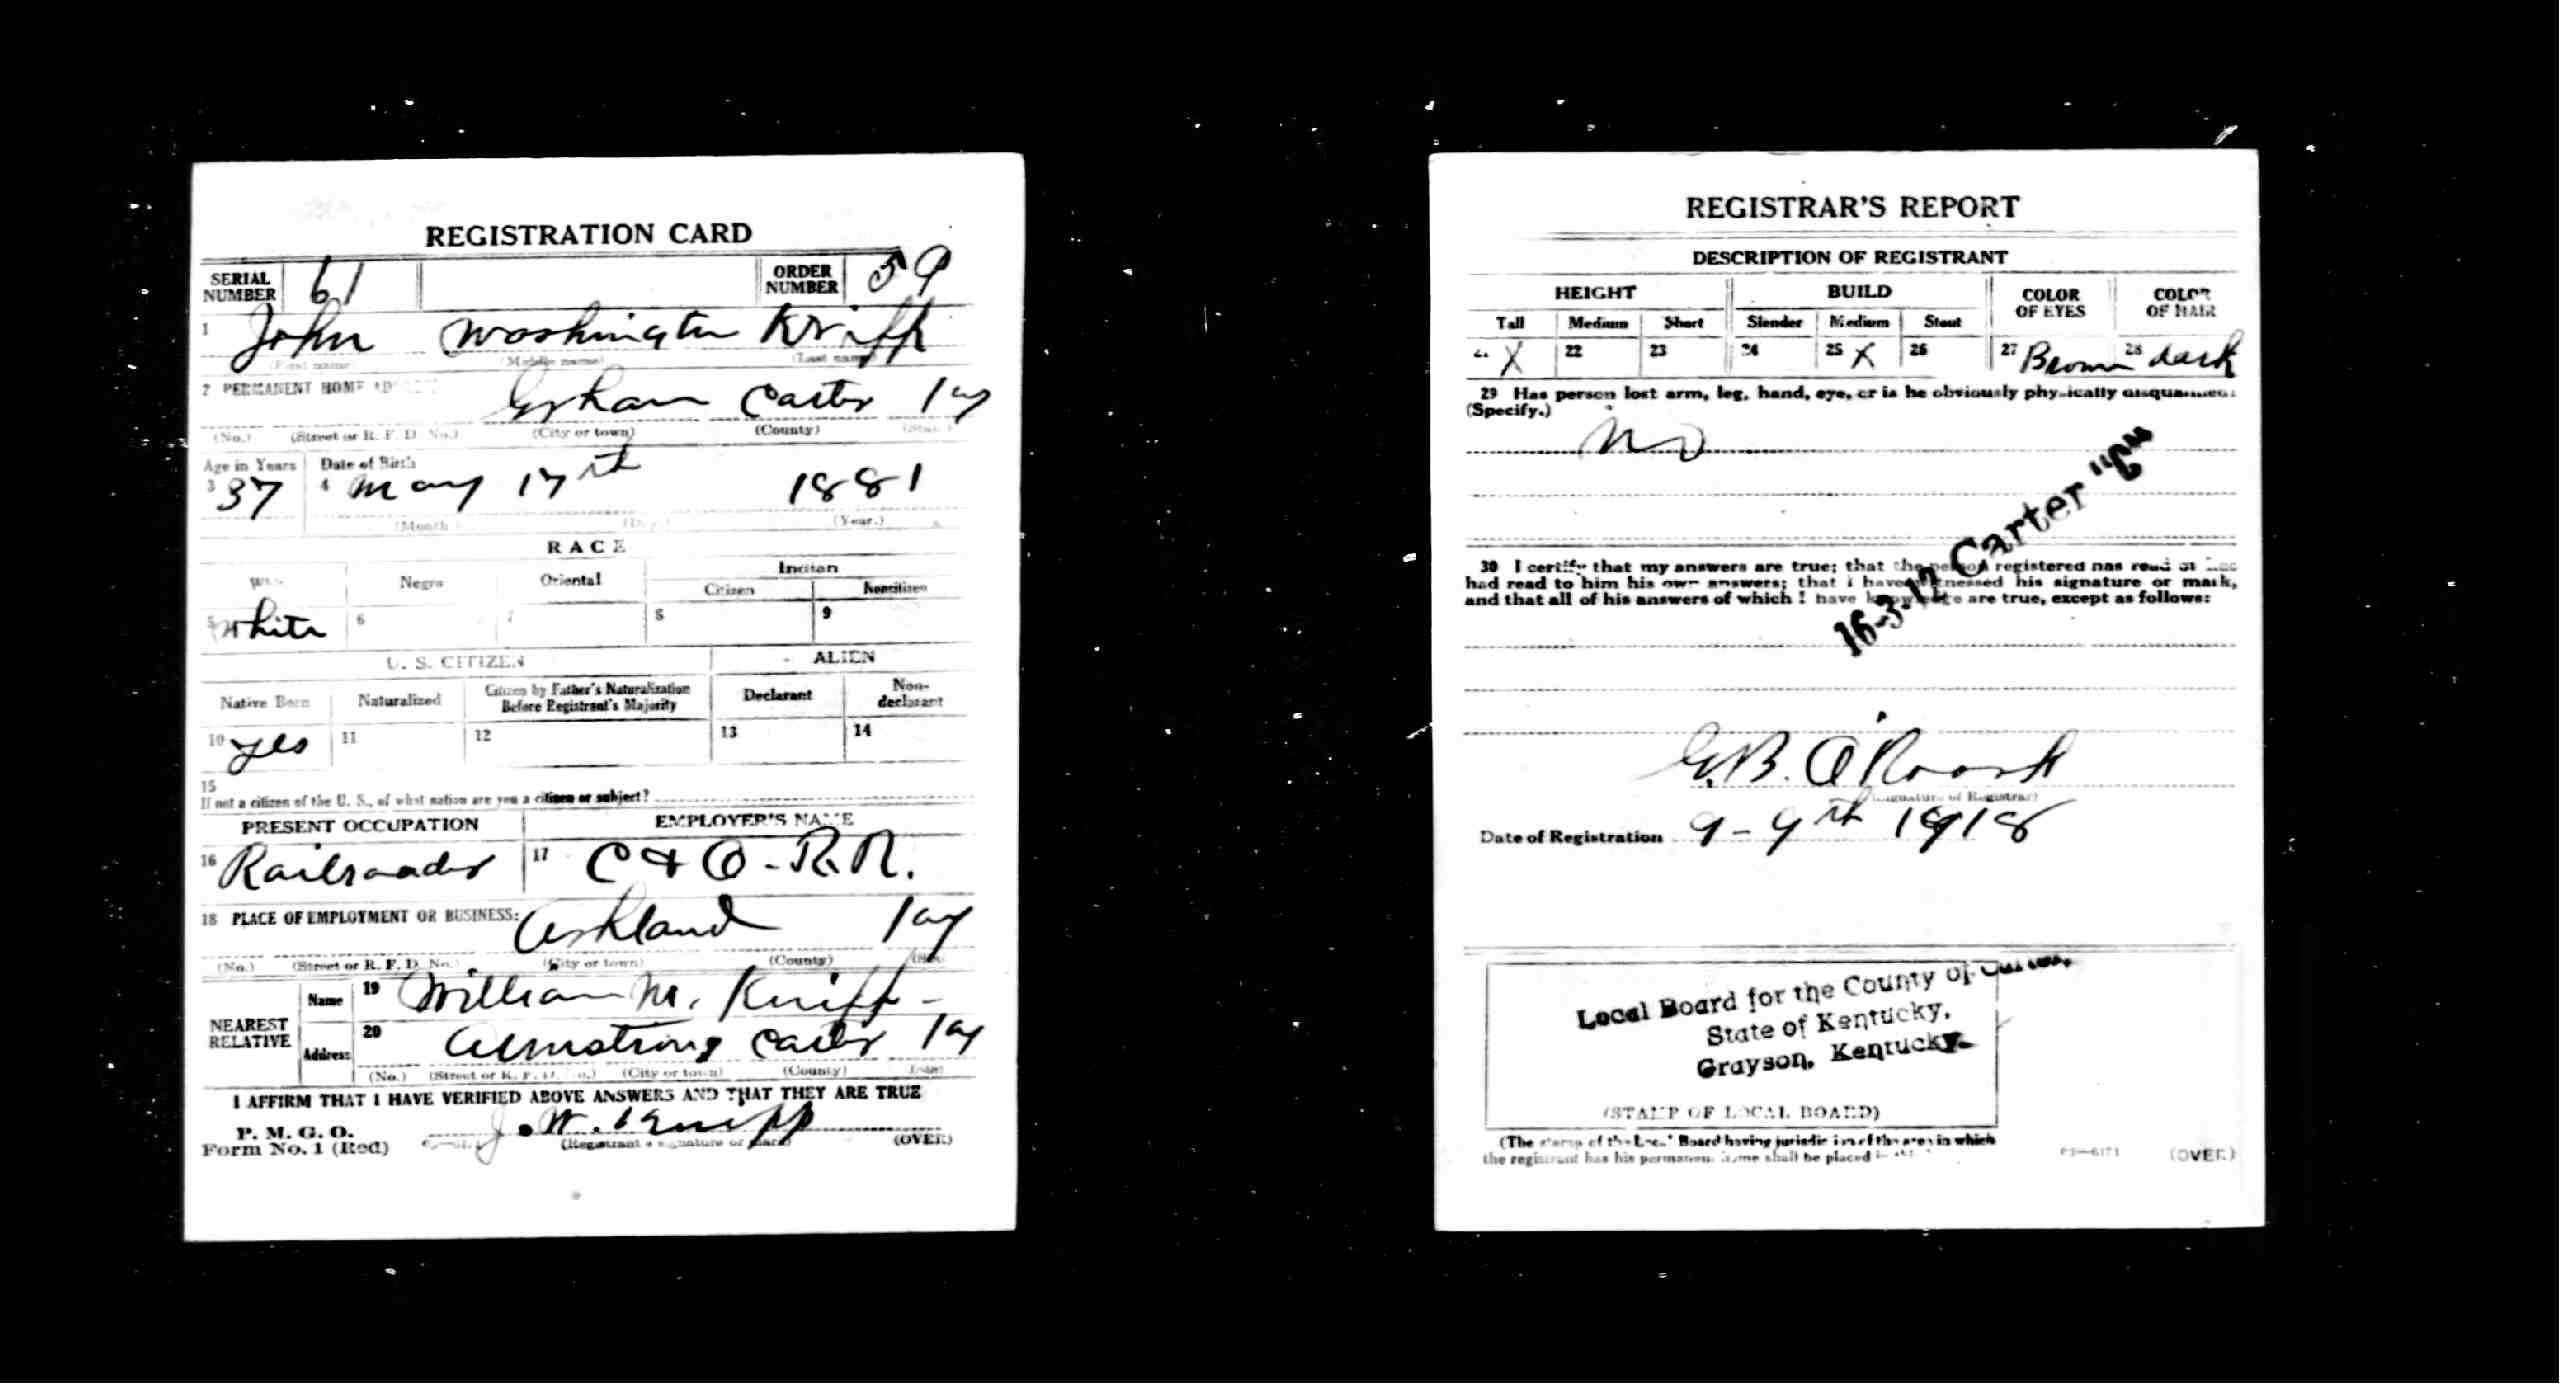 REGISTRATION CARD
SERIAL NUMBER 61 ORDER NUMBER 59
1 John Washington Kniff
(First name (Middle name) (Last name)
2 PERMANENT HOME
Graham Carter Ky
(No.) (Street or R. F. D. No.) (City or town) (County)
Age in Years Date of Birth
3 37 4 May 17th 1881
(Month) (Day) (Year.)
RACE
Negro Oriental Indian
Citizen Noncitizen
5 White 6 7 8 9
U. S. CITIZEN ALIEN
Native Born Naturalized Citizen by Father's Naturalization Before Registrant's Majority Declarant Non-declarant
10 yes 11 12 13 14
15
If not a citizen of the U. S., of what nation are you a citizen or subject?
PRESENT OCCUPATION EMPLOYER'S NAME
16 Railroader 17 C & O - R.R.
18 PLACE OF EMPLOYMENT OR BUSINESS:
Ashland Ky
(No.) (Street or R. F. D. No.) (City or town) (County)
NEAREST RELATIVE
Name 19 William M. Kniff -
Address 20 Armstrong Carter Ky
(No.) (Street or R. F. D. No.) (City or town) (County)
I AFFIRM THAT I HAVE VERIFIED ABOVE ANSWERS AND THAT THEY ARE TRUE
P. M. G. O.
Form No. 1 (Red) J. W. Knipp (OVER)
(Registrant's signature or mark)
REGISTRAR'S REPORT
DESCRIPTION OF REGISTRANT
HEIGHT BUILD COLOR OF EYES COLOR OF HAIR
Tall Medium Short Slender Medium Stout
21 X 22 23 24 25 X 26 27 Brown 28 dark
29 Has person lost arm, leg, hand, eye, or is he obviously physically disqualified?
(Specify.)
No
16-3-12 Carter "C"
30 I certify that my answers are true; that the person registered has read or has
had read to him his own answers; that I have witnessed his signature or mark,
and that all of his answers of which I have knowledge are true, except as follows:
G.B. O'Roark
(Signature of Registrar)
Date of Registration 9-9th 1918
Local Board for the County of Carter,
State of Kentucky,
Grayson, Kentucky.
(STAMP OF LOCAL BOARD)
(The stamp of the Local Board having jurisdiction of the area in which
the registrant has his permanent home shall be placed in
03-6171 (OVER)